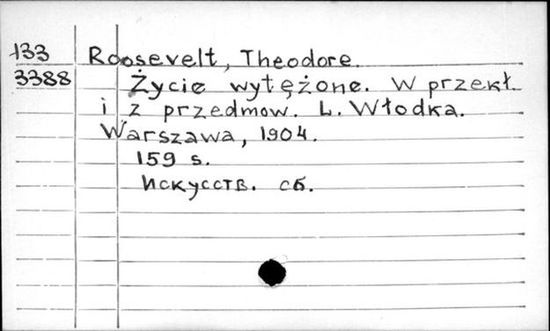 133 Roosevelt, Theodore.
3388 Życie wytężone. W przekł.
i z przedmow. L. Włodka.
Warszawa, 1904.
159 s.
Искусств. сб.